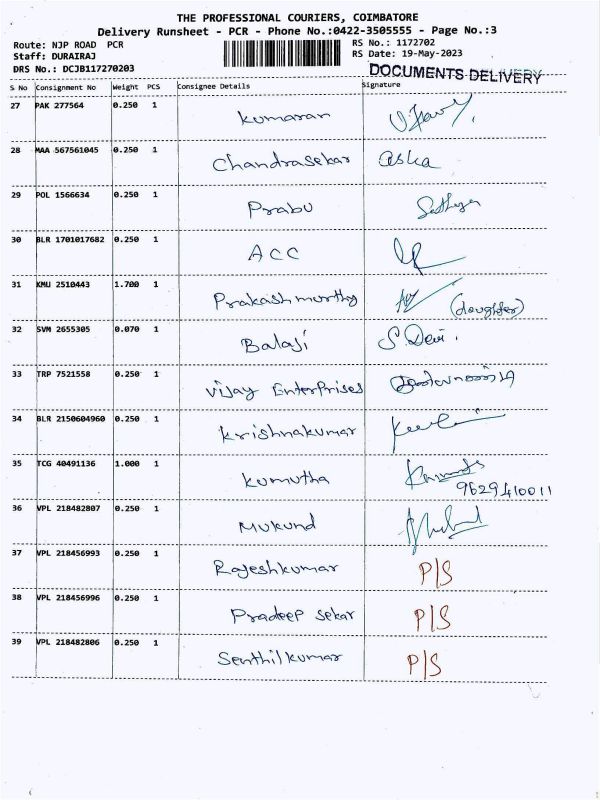 THE PROFESSIONAL COURIERS, COIMBATORE
Delivery Runsheet - PCR - Phone No.:0422-3505555 - Page No.:3
Route: NJP ROAD PCR RS No.: 1172702
Staff: DURAIRAJ RS Date: 19-May-2023
DRS No.: DCJB117270203 DOCUMENTS DELIVERY
S No Consignment No Weight PCS Consignee Details Signature
27 PAK 277564 0.250 1 Kumaran
28 MAA 567561045 0.250 1 Chandrasekar
29 POL 1566634 0.250 1 Prabu
30 BLR 1701017682 0.250 1 ACC
31 KMU 2510443 1.700 1 Prakashmurthy (daughter)
32 SVM 2655305 0.070 1 Balaji S. Devi.
33 TRP 7521558 0.250 1 Vijay Enterprises
34 BLR 2150604960 0.250 1 Krishnakumar
35 TCG 40491136 1.000 1 Kumutha
9629410011
36 VPL 218482807 0.250 1 Mukund
37 VPL 218456993 0.250 1 Rajeshkumar P/S
38 VPL 218456996 0.250 1 Pradeep Sekar P/S
39 VPL 218482806 0.250 1 Senthilkumar P/S